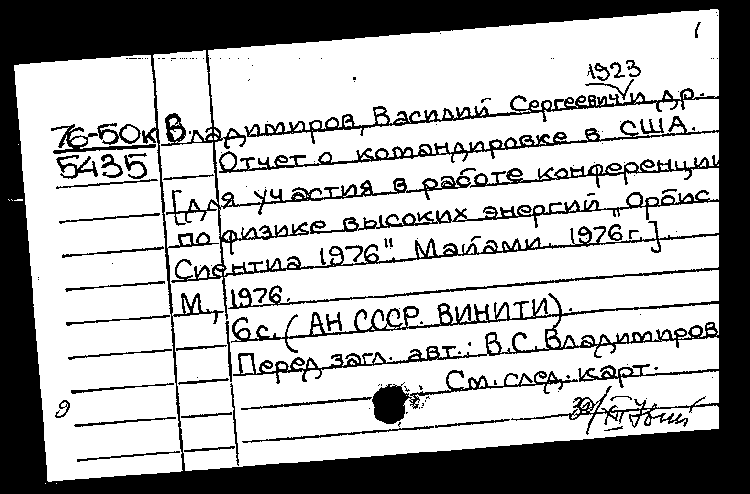 1
1923
76-50к Владимиров, Василий Сергеевич и др.
5435 Отчет о командировке в США.
[для участия в работе конференции
по физике высоких энергий „Орбис
Сиентиа 1976". Майами. 1976 г.].
М., 1976.
6 с. (АН СССР. ВИНИТИ).
Перед загл. авт.: В.С. Владимиров
См. след. карт.
9
30/XII